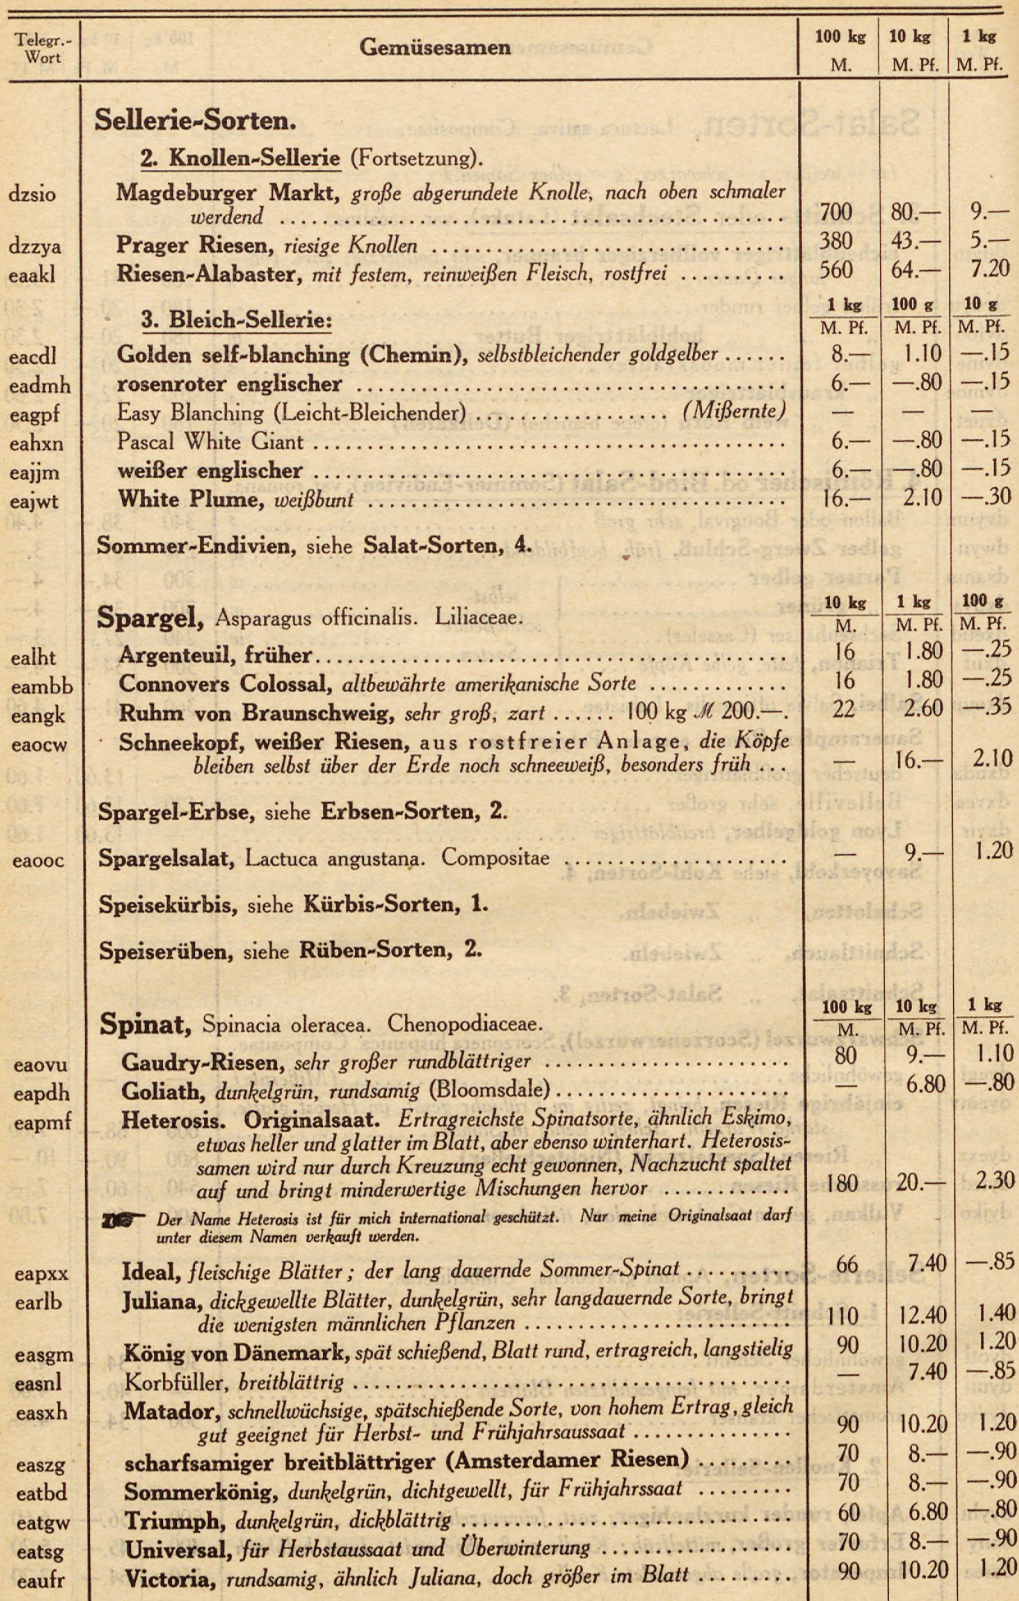 Telegr.-Wort Gemüsesamen 100 kg M. 10 kg M. Pf. 1 kg M. Pf.
Sellerie-Sorten.
2. Knollen-Sellerie (Fortsetzung).
dzsio Magdeburger Markt, große abgerundete Knolle, nach oben schmaler
werdend 700 80.— 9.—
dzzya Prager Riesen, riesige Knollen 380 43.— 5.—
eaakl Riesen-Alabaster, mit festem, reinweißen Fleisch, rostfrei 560 64.— 7.20
3. Bleich-Sellerie: 1 kg M. Pf. 100 g M. Pf. 10 g M. Pf.
eacdl Golden self-blanching (Chemin), selbstbleichender goldgelber 8.— 1.10 —.15
eadmh rosenroter englischer 6.— —.80 —.15
eagpf Easy Blanching (Leicht-Bleichender) (Mißernte) — — —
eahxn Pascal White Giant 6.— —.80 —.15
eajjm weißer englischer 6.— —.80 —.15
eajwt White Plume, weißbunt 16.— 2.10 —.30
Sommer-Endivien, siehe Salat-Sorten, 4.
Spargel, Asparagus officinalis. Liliaceae. 10 kg M. 1 kg M. Pf. 100 g M. Pf.
ealht Argenteuil, früher 16 1.80 —.25
eambb Connovers Colossal, altbewährte amerikanische Sorte 16 1.80 —.25
eangk Ruhm von Braunschweig, sehr groß, zart ...... 100 kg ℳ 200.—. 22 2.60 —.35
eaocw Schneekopf, weißer Riesen, aus rostfreier Anlage, die Köpfe
bleiben selbst über der Erde noch schneeweiß, besonders früh ... — 16.— 2.10
Spargel-Erbse, siehe Erbsen-Sorten, 2.
eaooc Spargelsalat, Lactuca angustana. Compositae — 9.— 1.20
Speisekürbis, siehe Kürbis-Sorten, 1.
Speiserüben, siehe Rüben-Sorten, 2.
Spinat, Spinacia oleracea. Chenopodiaceae. 100 kg M. 10 kg M. Pf. 1 kg M. Pf.
eaovu Gaudry-Riesen, sehr großer rundblättriger 80 9.— 1.10
eapdh Goliath, dunkelgrün, rundsamig (Bloomsdale) — 6.80 —.80
eapmf Heterosis. Originalsaat. Ertragreichste Spinatsorte, ähnlich Eskimo,
etwas heller und glatter im Blatt, aber ebenso winterhart. Heterosis-
samen wird nur durch Kreuzung echt gewonnen, Nachzucht spaltet
auf und bringt minderwertige Mischungen hervor 180 20.— 2.30
Der Name Heterosis ist für mich international geschützt. Nur meine Originalsaat darf
unter diesem Namen verkauft werden.
eapxx Ideal, fleischige Blätter; der lang dauernde Sommer-Spinat 66 7.40 —.85
earlb Juliana, dickgewellte Blätter, dunkelgrün, sehr langdauernde Sorte, bringt
die wenigsten männlichen Pflanzen 110 12.40 1.40
easgm König von Dänemark, spät schießend, Blatt rund, ertragreich, langstielig 90 10.20 1.20
easnl Korbfüller, breitblättrig — 7.40 —.85
easxh Matador, schnellwüchsige, spätschießende Sorte, von hohem Ertrag, gleich
gut geeignet für Herbst- und Frühjahrsaussaat 90 10.20 1.20
easzg scharfsamiger breitblättriger (Amsterdamer Riesen) 70 8.— —.90
eatbd Sommerkönig, dunkelgrün, dichtgewellt, für Frühjahrssaat 70 8.— —.90
eatgw Triumph, dunkelgrün, dickblättrig 60 6.80 —.80
eatsg Universal, für Herbstaussaat und Überwinterung 70 8.— —.90
eaufr Victoria, rundsamig, ähnlich Juliana, doch größer im Blatt 90 10.20 1.20